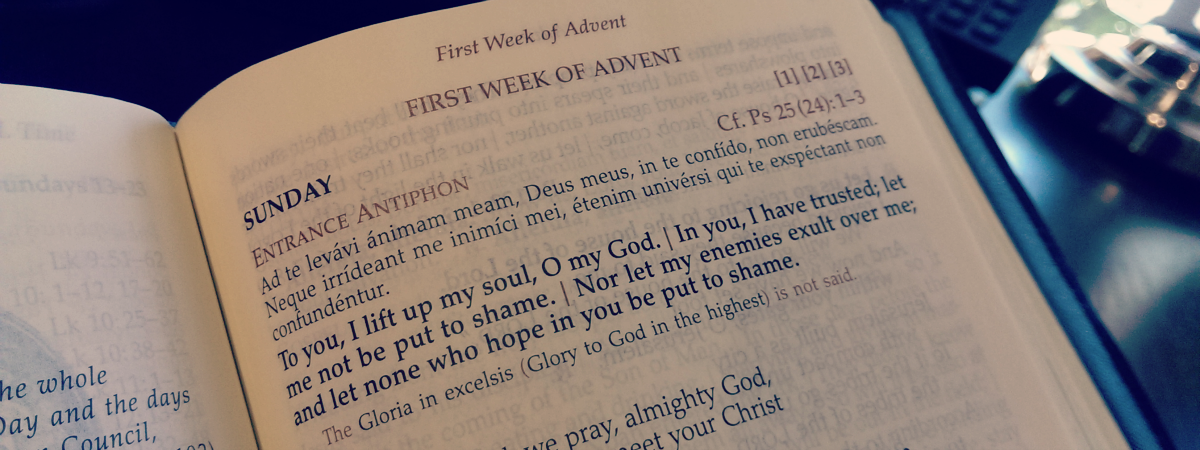 l. Time
Sundays 13–23
Lk 9:51–62
10: 1–12, 17–20
Lk 10: 25–37
Lk 10:38–42
he whole
Day and the days
Council,
First Week of Advent
FIRST WEEK OF ADVENT
[1] [2] [3]
SUNDAY
Cf. Ps 25 (24): 1–3
ENTRANCE ANTIPHON
Ad te levávi ánimam meam, Deus meus, in te confído, non erubéscam.
Neque irrídeant me inimíci mei, étenim univérsi qui te exspéctant non
confundéntur.
To you, I lift up my soul, O my God. | In you, I have trusted; let
me not be put to shame. | Nor let my enemies exult over me;
and let none who hope in you be put to shame.
The Gloria in excelsis (Glory to God in the highest) is not said.
we pray, almighty God,
meet your Christ